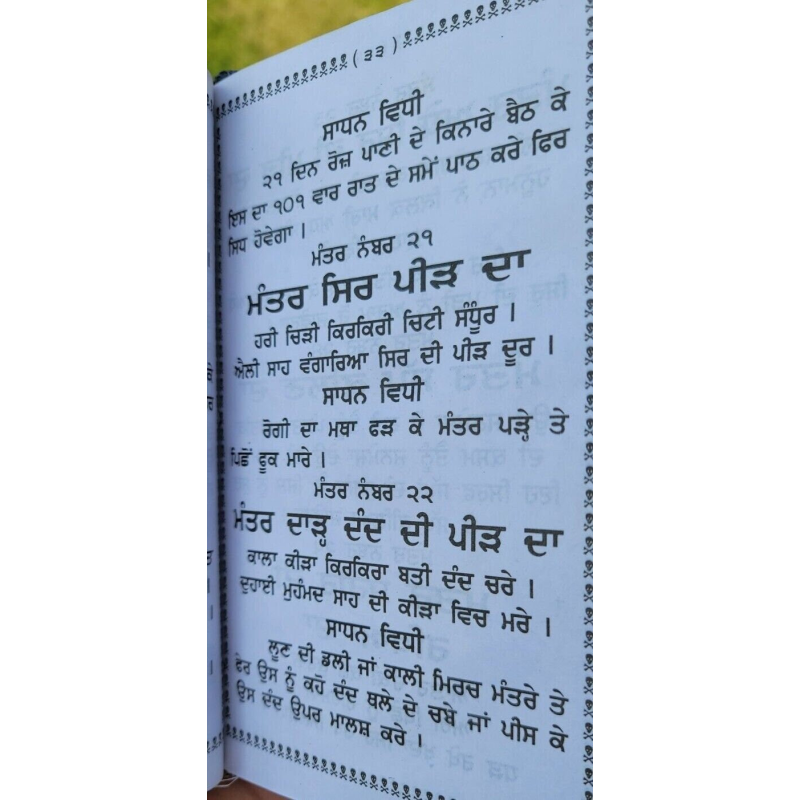 ( ੩੩ )
ਸਾਧਨ ਵਿਧੀ
੨੧ ਦਿਨ ਰੋਜ਼ ਪਾਣੀ ਦੇ ਕਿਨਾਰੇ ਬੈਠ ਕੇ
ਇਸ ਦਾ ੧੦੧ ਵਾਰ ਰਾਤ ਦੇ ਸਮੇਂ ਪਾਠ ਕਰੇ ਫਿਰ
ਸਿਧ ਹੋਵੇਗਾ ।
ਮੰਤਰ ਨੰਬਰ ੨੧
ਮੰਤਰ ਸਿਰ ਪੀੜ ਦਾ
ਹਰੀ ਚਿੜੀ ਕਿਰਕਿਰੀ ਚਿਟੀ ਸੰਧੂੰਰ ।
ਐਲੀ ਸਾਹ ਵੰਗਾਰਿਆ ਸਿਰ ਦੀ ਪੀੜ ਦੂਰ ।
ਸਾਧਨ ਵਿਧੀ
ਰੋਗੀ ਦਾ ਮਥਾ ਫੜ ਕੇ ਮੰਤਰ ਪੜ੍ਹੇ ਤੇ
ਪਿਛੋਂ ਫੂਕ ਮਾਰੇ ।
ਮੰਤਰ ਨੰਬਰ ੨੨
ਮੰਤਰ ਦਾੜ੍ਹ ਦੰਦ ਦੀ ਪੀੜ ਦਾ
ਕਾਲਾ ਕੀੜਾ ਕਿਰਕਿਰਾ ਬਤੀ ਦੰਦ ਚਰੇ ।
ਦੁਹਾਈ ਮੁਹੰਮਦ ਸਾਹ ਦੀ ਕੀੜਾ ਵਿਚ ਮਰੇ ।
ਸਾਧਨ ਵਿਧੀ
ਲੂਣ ਦੀ ਡਲੀ ਜਾਂ ਕਾਲੀ ਮਿਰਚ ਮੰਤਰੇ ਤੇ
ਫੇਰ ਉਸ ਨੂੰ ਕਹੋ ਦੰਦ ਥਲੇ ਦੇ ਚਬੇ ਜਾਂ ਪੀਸ ਕੇ
ਉਸ ਦੰਦ ਉਪਰ ਮਾਲਸ਼ ਕਰੇ ।